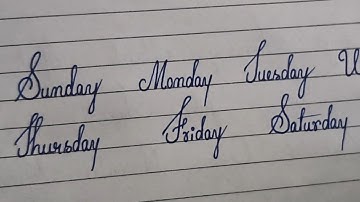 Sunday Monday Tuesday
Thursday Friday Saturday